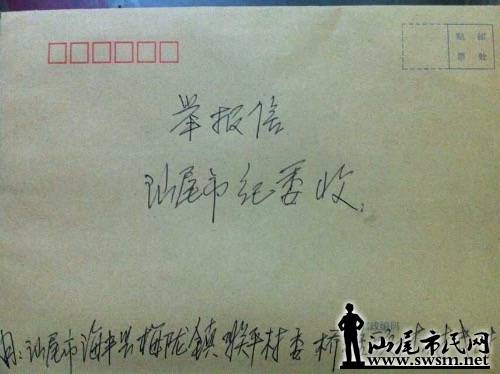 贴 邮
票 处
举报信
汕尾市纪委收
汕尾市海丰县梅陇镇联平村委桥
邮政编码
汕尾市民网
www.swsm.net